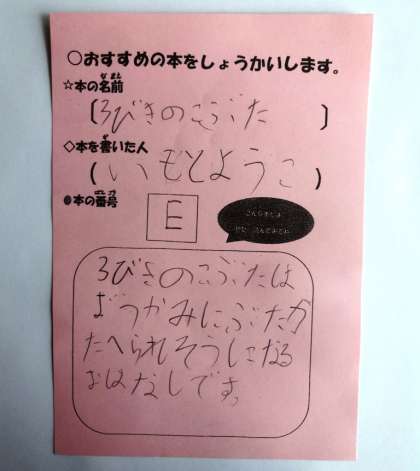 ○おすすめの本をしょうかいします。
☆本の名前
〔3びきのこぶた〕
◇本を書いた人
(いもとようこ)
◎本の番号
E
3びきのこぶたは
おうかみにぶたが
たべられそうになる
おはなしです。